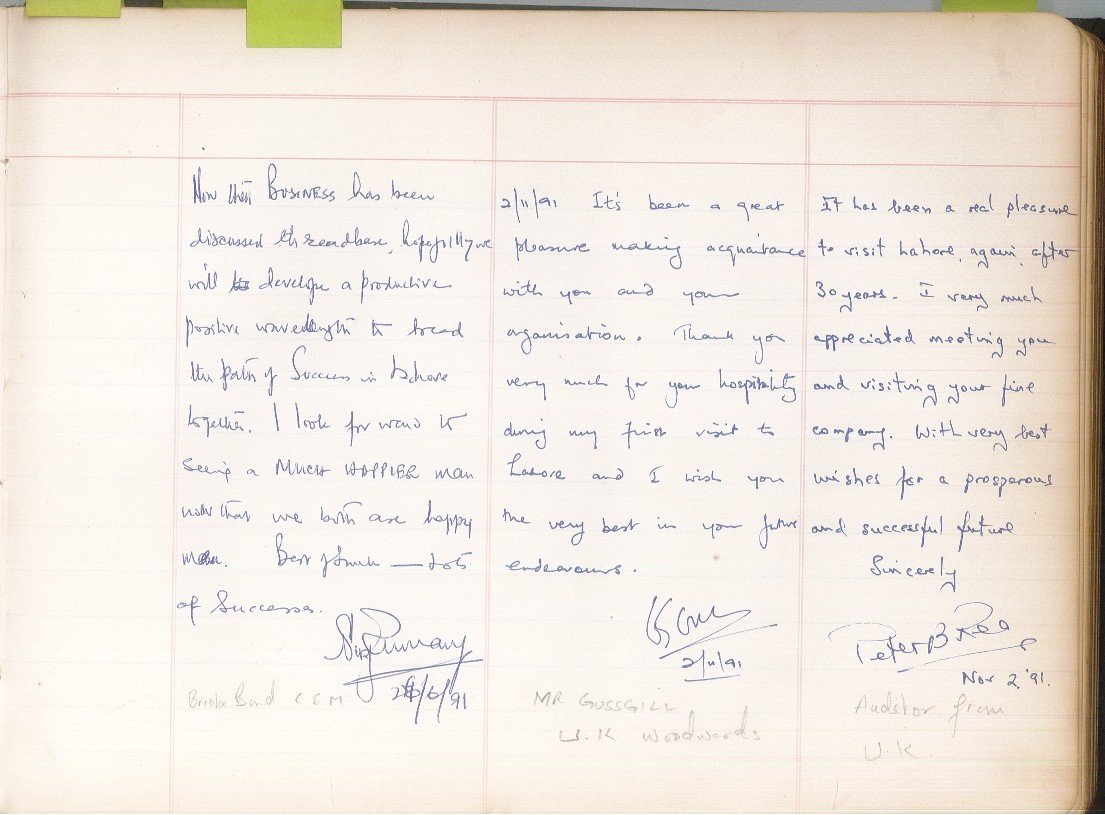 Now that BUSINESS has been
discussed threadbare, hopefully we
will develope a productive
positive wavelength to tread
the path of Success in Lahore
together. I look forward to
Seeing a MUCH HAPPIER man
now that we both are happy
men. Best of Luck — Lots
of Successes.
/6/91
Brooke Bond CSM
2/11/91 It's been a great
pleasure making acquaitance
with you and your
organisation. Thank you
very much for your hospitality
during my first visit to
Lahore and I wish you
the very best in your future
endeavours.
2/11/91
MR GUSSGILL
U.K Woodwards
It has been a real pleasure
to visit Lahore, again, after
30 years. I very much
appreciated meeting you
and visiting your fine
company. With very best
wishes for a prosperous
and successful future
Sincerely
Peter B
Nov 2, '91.
Auditor from
U.K.